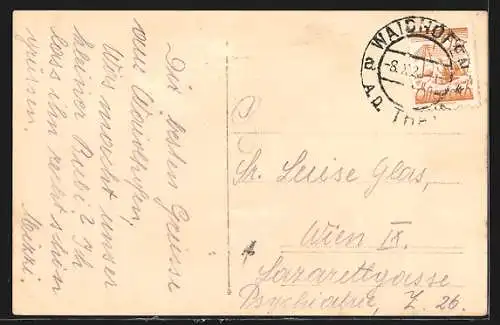 Die besten Grüsse
von Waidhofen,
Was macht unser
kleiner Bubi? Ich
lass ihn recht schön
grüssen.
Minzi.
WAIDHOFEN
A.D. Tha
-8.X.2
Sr. Luise Glas,
Wien IX.
Lazarettgasse
Psychiatrie, Z. 26.